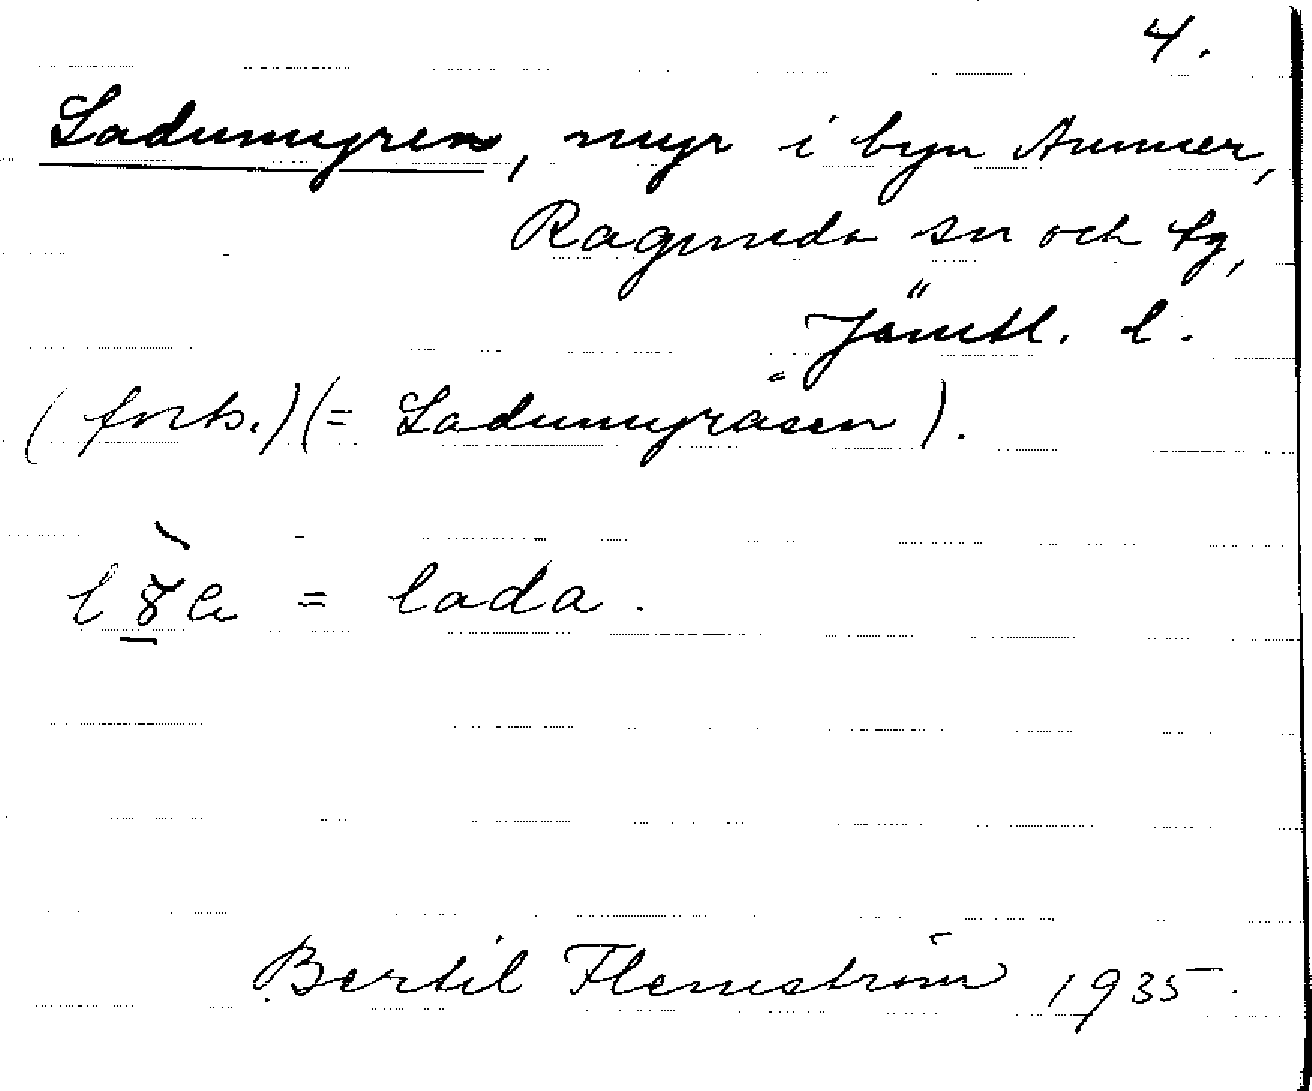 4.
Ladumyren, myr i byn Ammer,
Ragunda sn och tg,
Jämtl. l.
(forts.) (= Ladumyråsen).
= lada.
Bertil Flemström 1935.